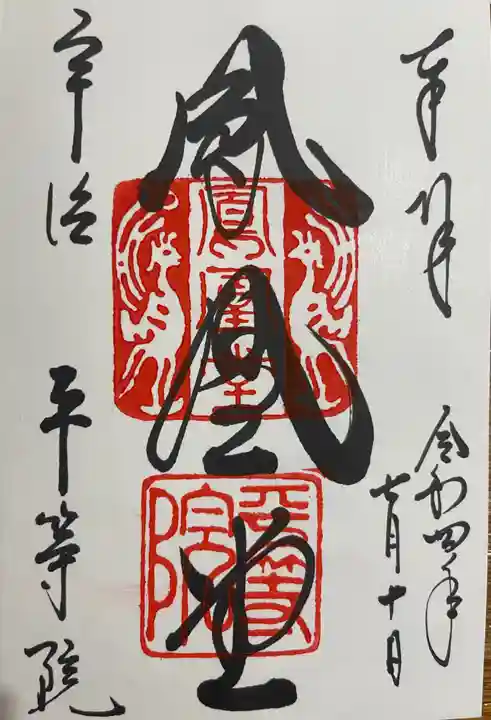 奉拝
令和四年
七月十日
鳳凰堂
鳳凰堂
平等院
宇治
平等院